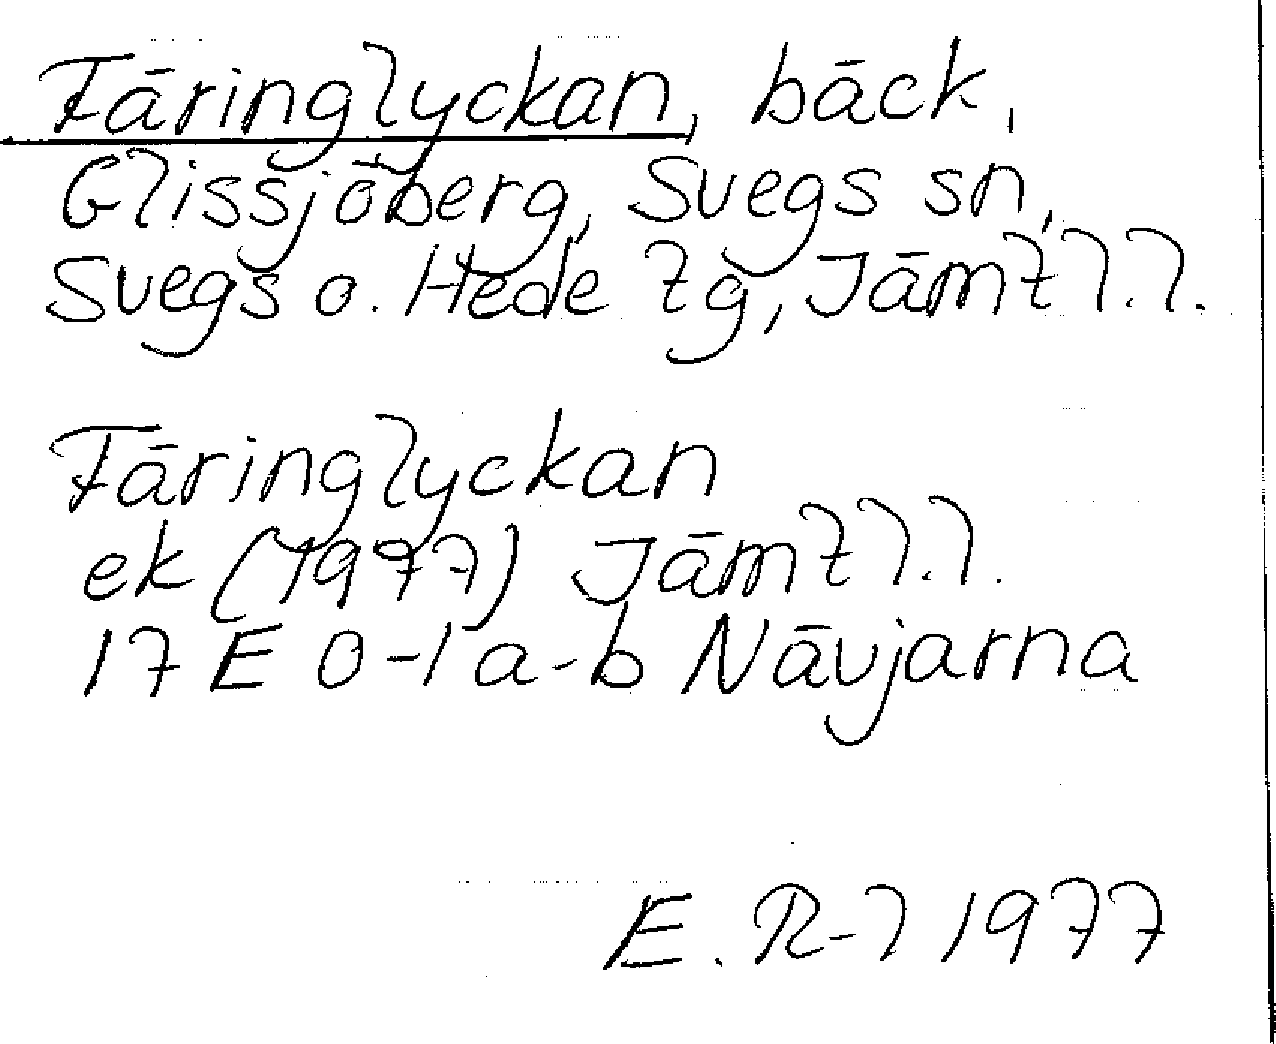 Färinglyckan, bäck,
Glissjöberg, Svegs sn,
Svegs o. Hede tg, Jämtl.l.
Färinglyckan
ek (1977) Jämtl.l.
17 E 0-1 a-b Nävjarna
E. R-l 1977